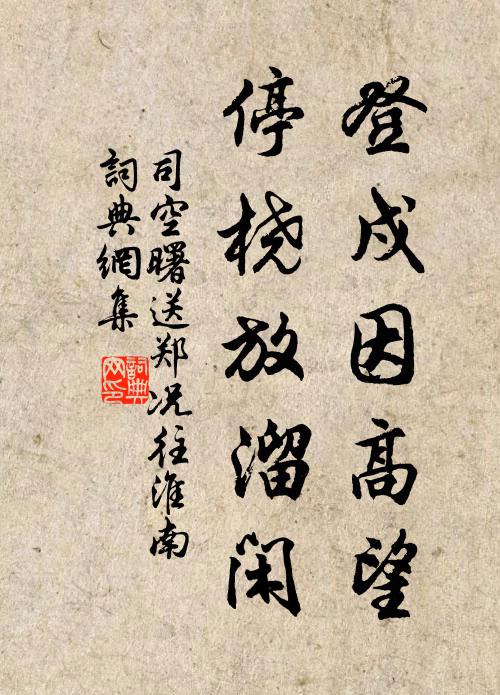 登戍因高望
停桡放溜閑
司空曙送郑况往淮南
詞典網集
詞典网印